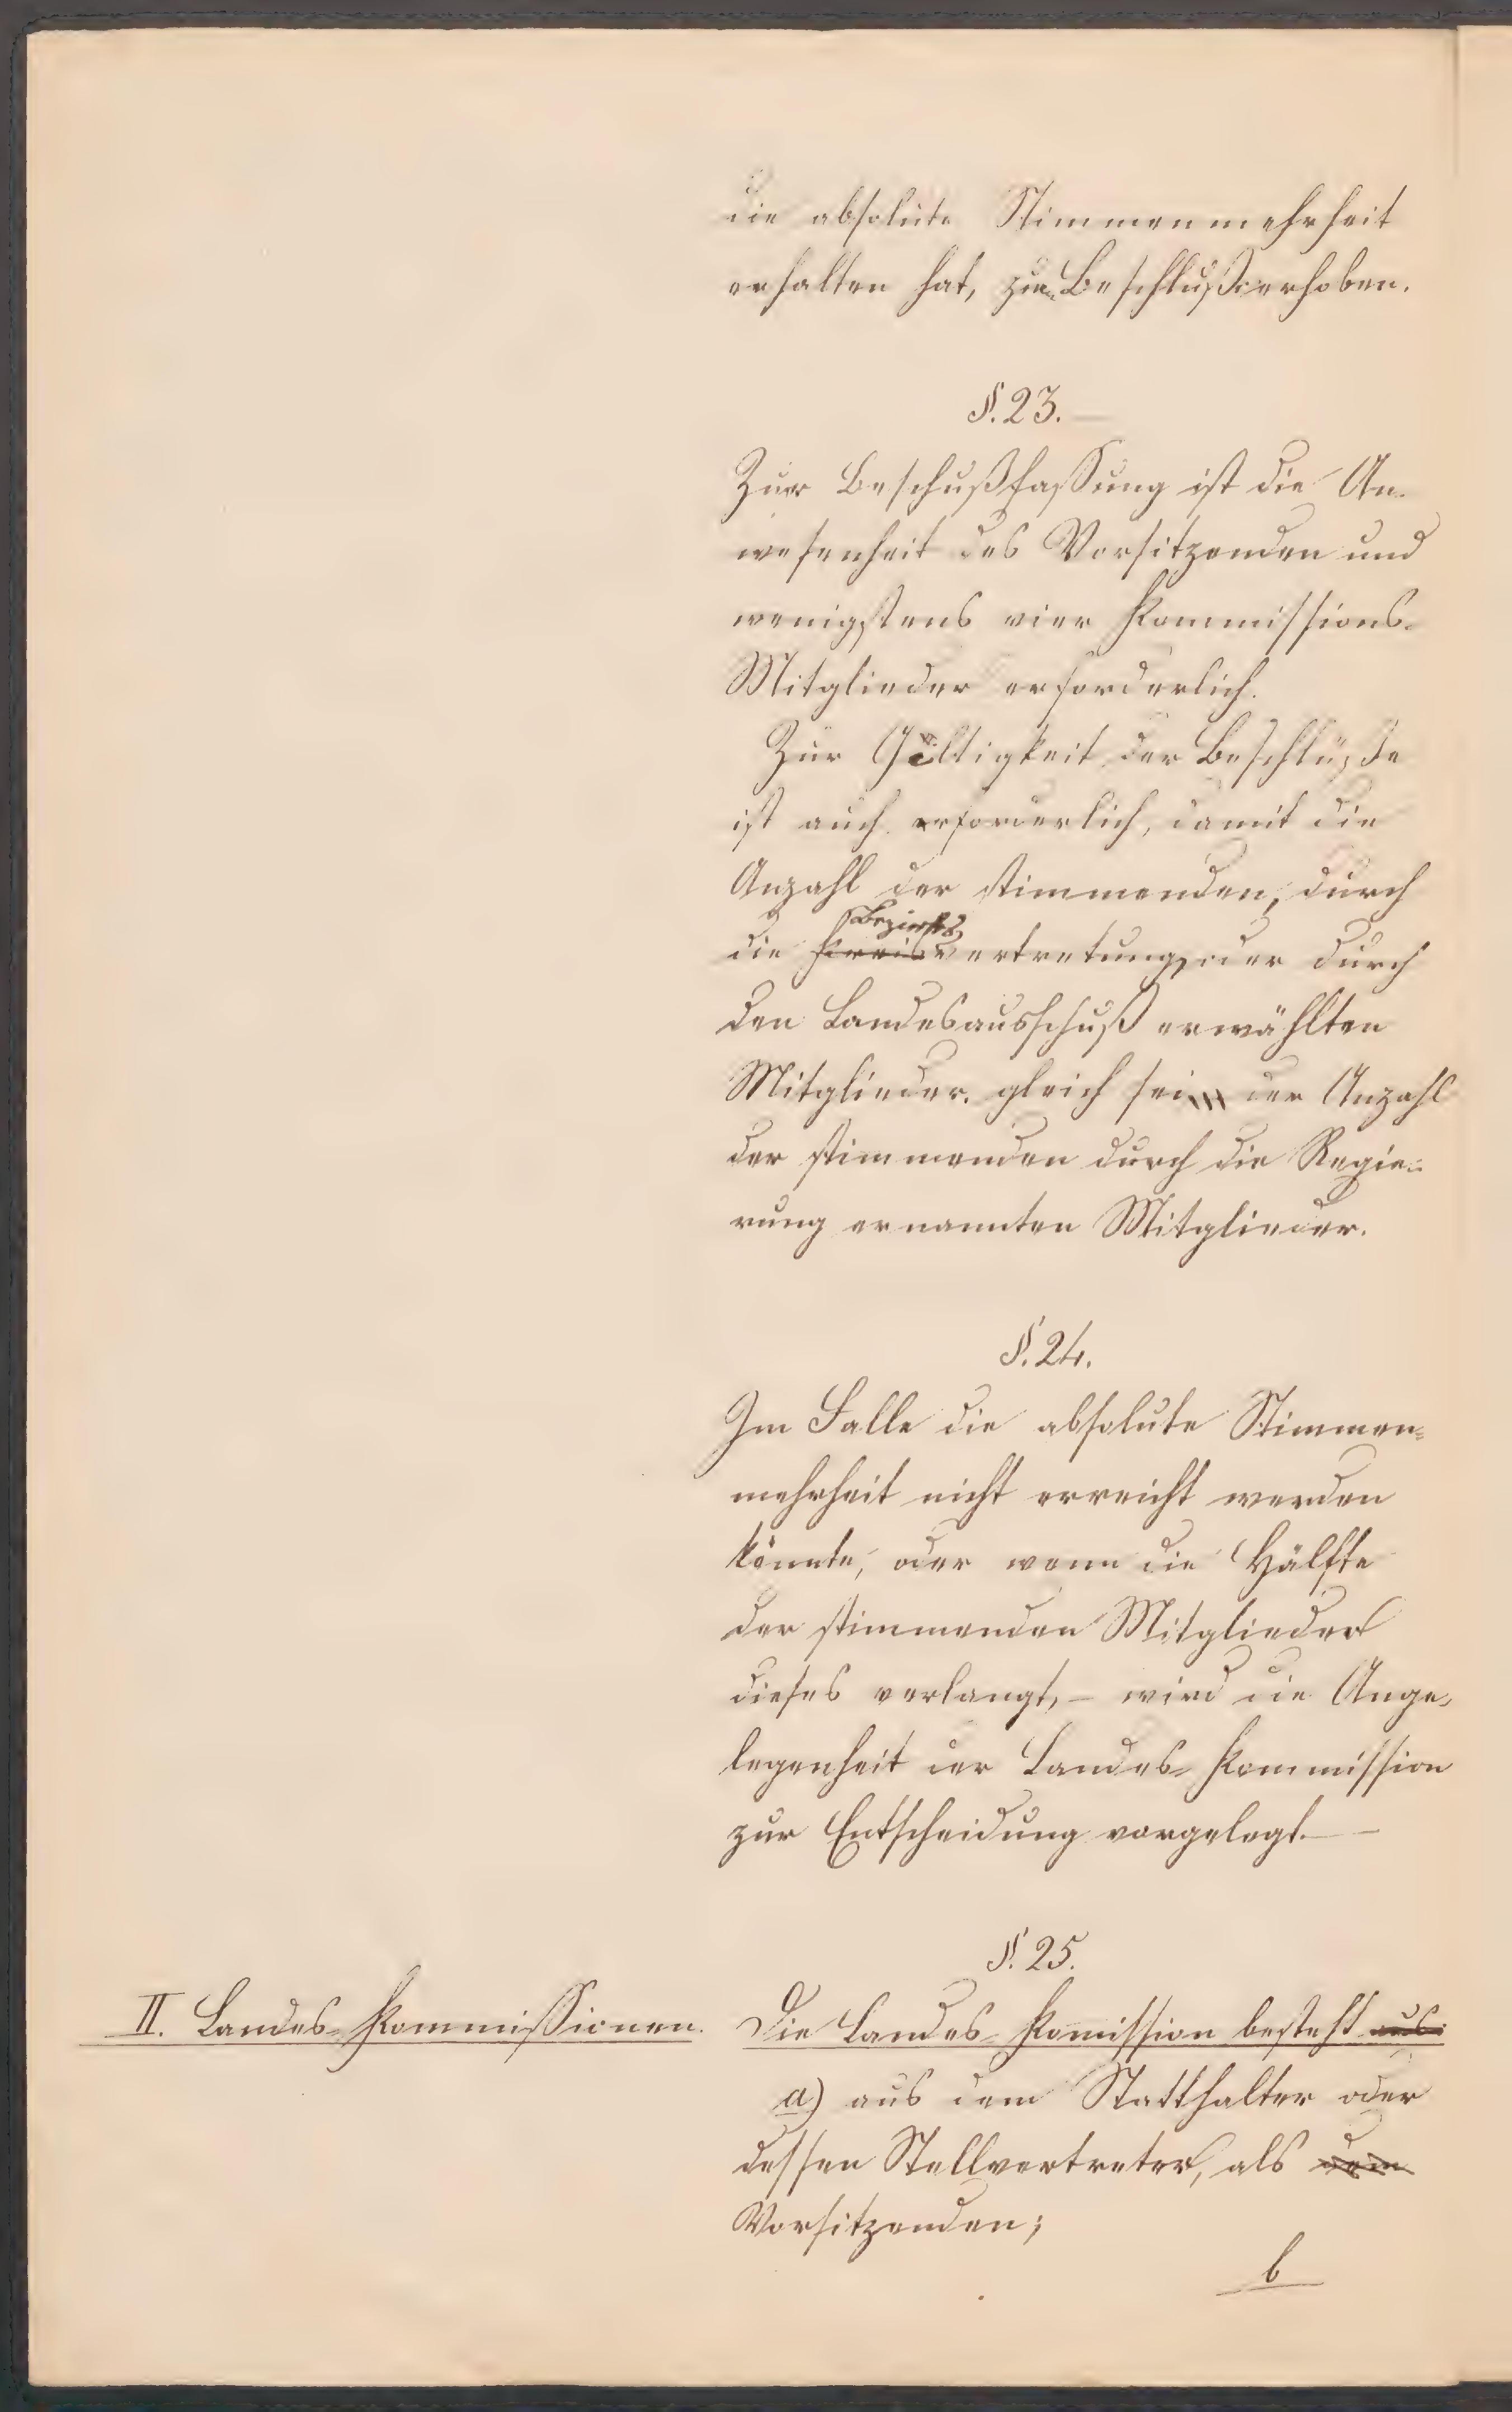 die absolute Stimmenmehrheit
erhalten hat, zum Beschluß erhoben.
§. 23.
Zur Beschußfassung ist die An-
wesenheit des Vorsitzenden und
wenigstens vier Kommissions-
Mitglieder erforderlich.
Zur Gültigkeit der Beschlüße
ist auch erforderlich, damit die
Anzahl der stimmenden, durch
Bezirks
die Kreisvertretung oder durch
den Landesausschuß erwählten
Mitglieder, gleich sei der Anzahl
der stimmenden durch die Regie-
rung ernannten Mitglieder.
§. 24.
Im Falle die absolute Stimmen-
mehrheit nicht erreicht werden
könnte, oder wenn die Hälfte
der stimmenden Mitglieder
dieses verlangt, – wird die Ange-
legenheit der Landes-Kommission
zur Entscheidung vorgelegt. –
§. 25.
II. Landes-Kommissionen.
Die Landes-Komission besteht aus:
a) aus dem Statthalter oder
dessen Stellvertreter, als dem
Vorsitzenden;
b